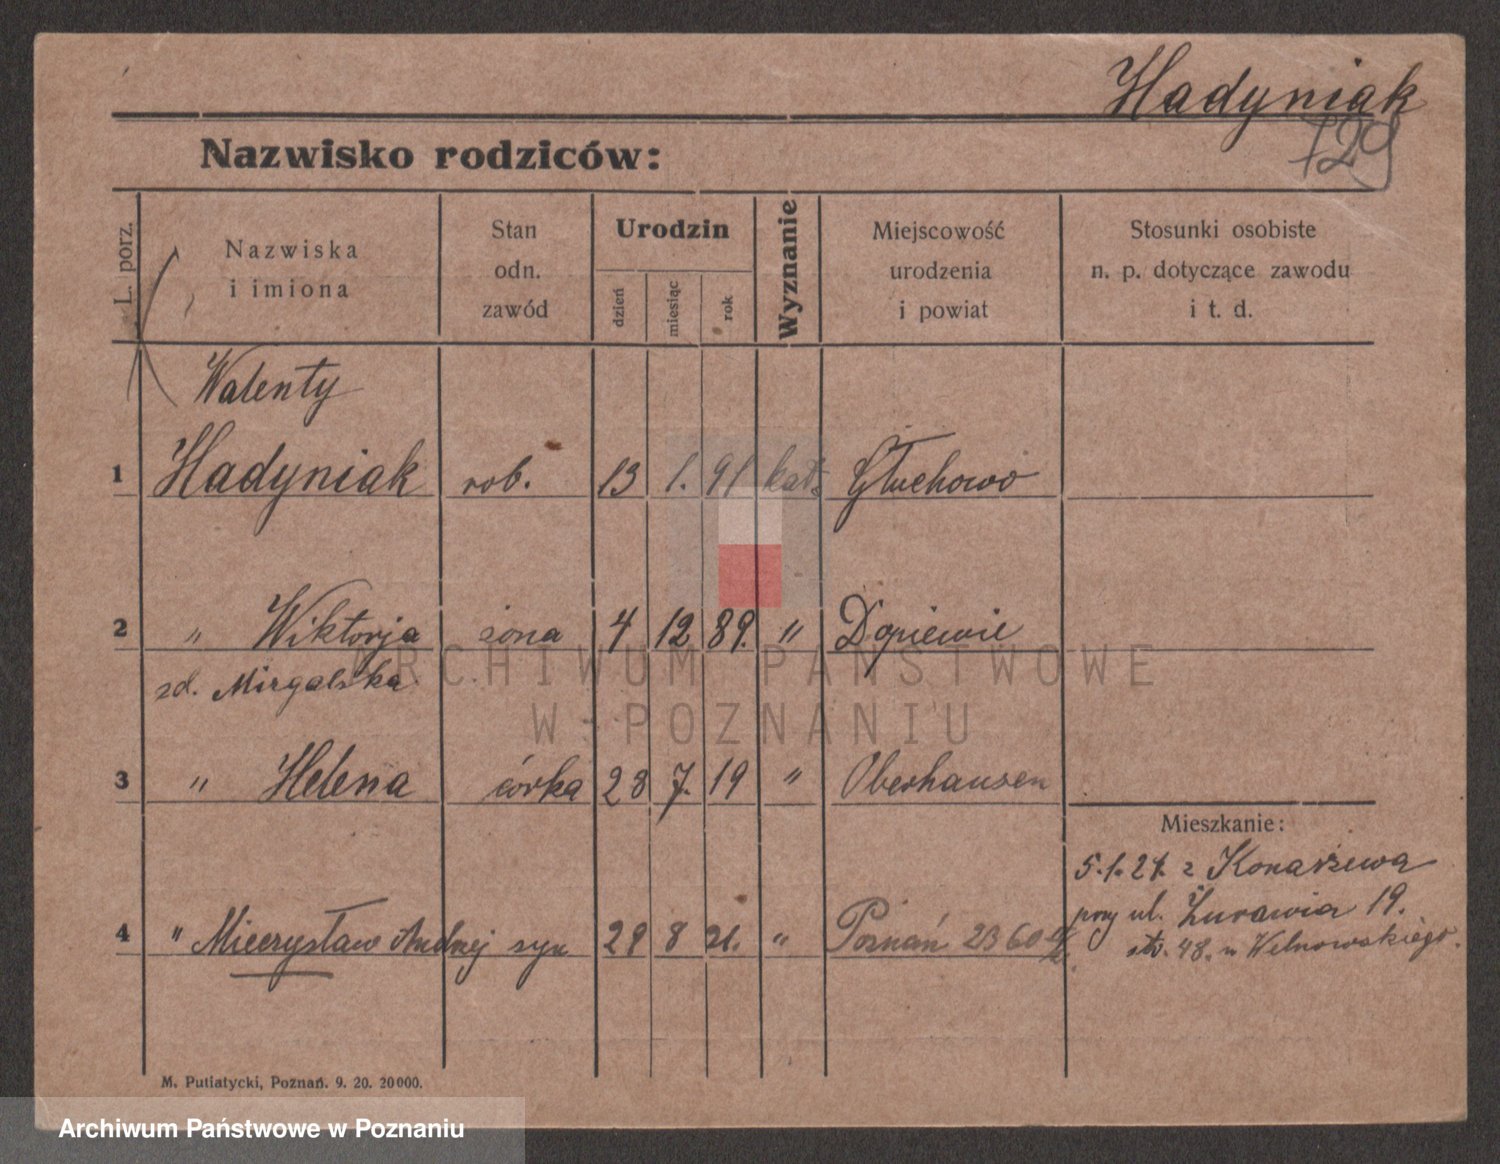 Hadyniak
129
Nazwisko rodziców:
L. porz.
Nazwiska
i imiona
Stan
odn.
zawód
Urodzin
dzień
miesiąc
rok
Wyznanie
Miejscowość
urodzenia
i powiat
Stosunki osobiste
n. p. dotyczące zawodu
i t. d.
Walenty
1 Hadyniak rob. 13 1. 91 kat. Głuchowo
2 " Wiktorja żona 4 12 89. " Dopiewie
zd. Mirgalska
3 " Helena córka 28 7. 19 " Oberhausen
Mieszkanie:
5.1.21. z Konarzewa
przy ul. Żurawia 19.
4 " Mieczysław Andrzej syn 29 8 21. " Poznań 2360
str. 48. u Welnowskiego.
M. Putiatycki, Poznań. 9. 20. 20000.
ARCHIWUM PAŃSTWOWE
W POZNANIU
Archiwum Państwowe w Poznaniu